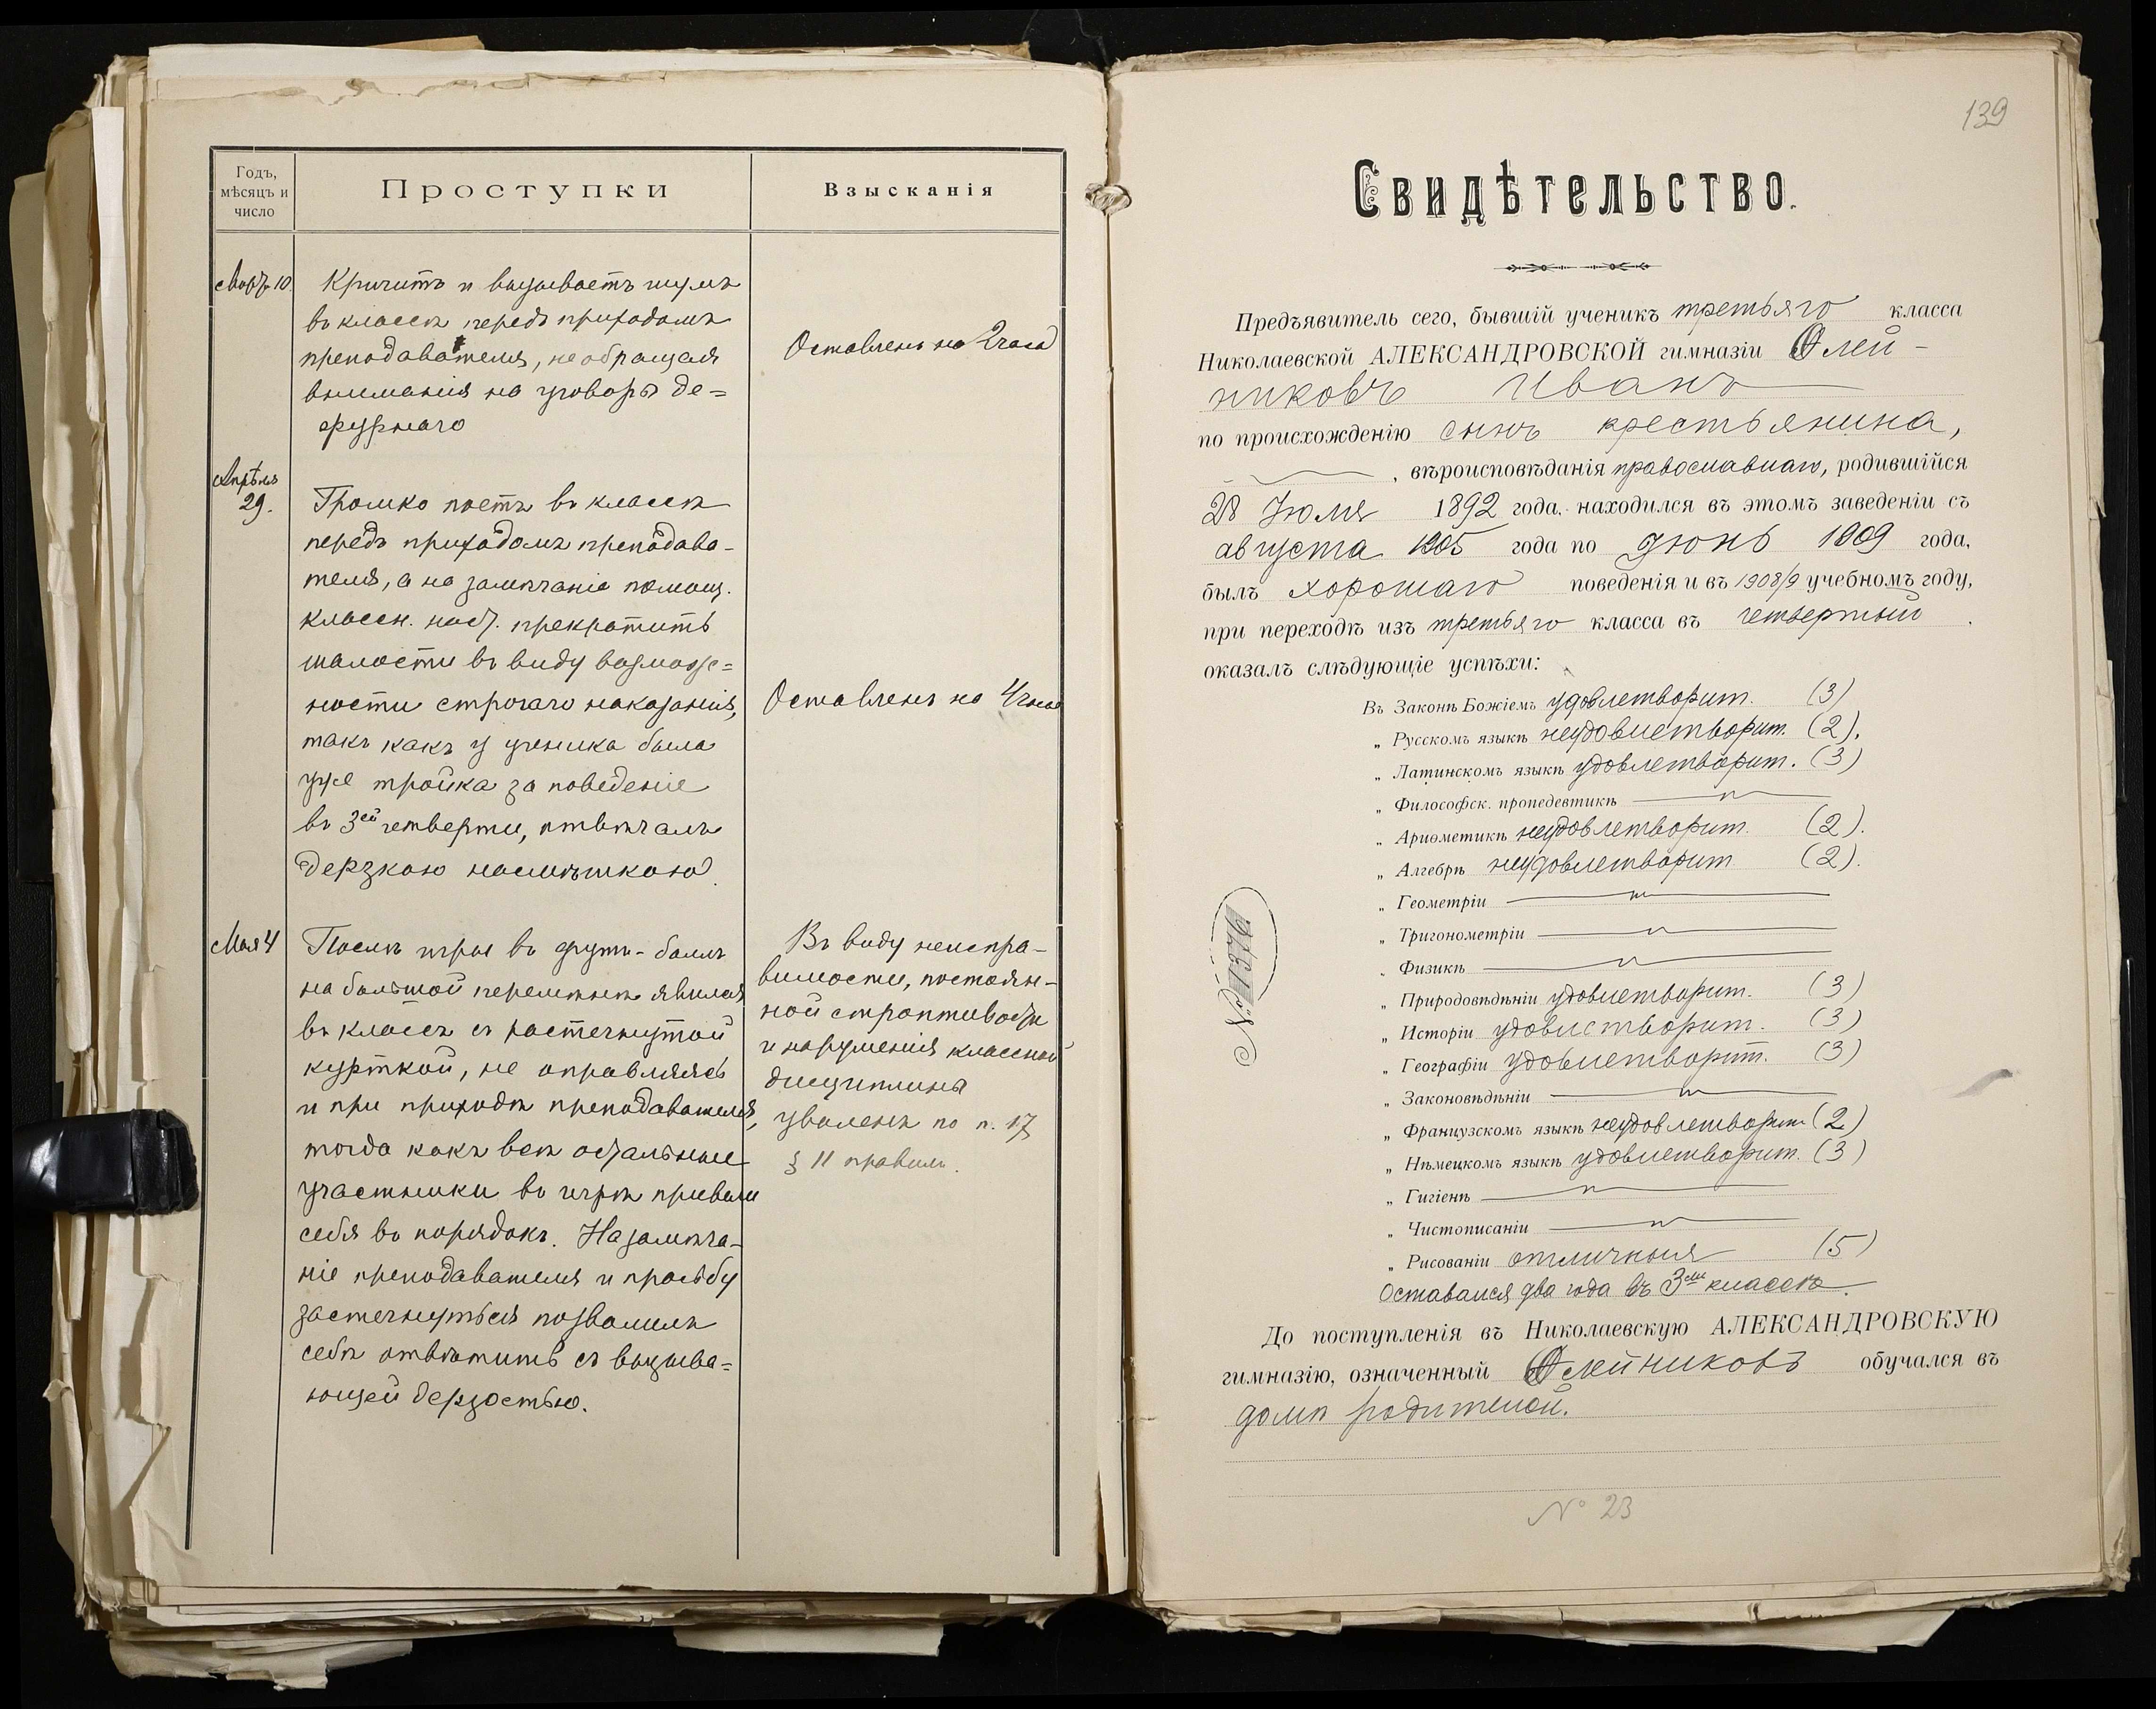 Годъ,
мѣсяцъ и
число
Проступки
Взысканія
Март. 10.
Кричитъ и вызываетъ шумъ
въ классѣ передъ приходомъ
преподавателя, не обращая
вниманія на уговоры де=
журнаго
Оставленъ на 2 часа
Апрѣля
29.
Громко поетъ въ классѣ
передъ приходомъ преподава-
теля, а на замѣчаніе помощ.
классн. наст. прекратить
шалости въ виду возможе=
ности строгаго наказанія,
такъ какъ у ученика была
уже тройка за поведеніе
въ 3ей четверти, отвѣчалъ
дерзкою насмѣшкою.
Оставленъ на 4 часа
Мая 4
Послѣ игры въ футъ-болъ
на большой перемѣнѣ явился
въ классъ съ растегнутой
курткой, не оправляясь
и при приходѣ преподавателя,
тогда какъ всѣ остальные
участники въ игрѣ привели
себя въ порядокъ. На замѣча-
ніе преподавателя и просьбу
застегнуться позволилъ
себѣ отвѣтить съ вызыва=
ющей дерзостью.
Въ виду неиспра-
вимости, постоян-
ной строптивости
и нарушенія классной
дисциплины
уволенъ по п. 17
§ 11 правилъ.
139
Свидѣтельство.
Предъявитель сего, бывшій ученикъ третьяго класса
Николаевской АЛЕКСАНДРОВСКОЙ гимназіи Олей-
никовъ Иванъ
по происхожденію сынъ крестьянина,
, вѣроисповѣданія православнаго, родившійся
28 Іюля 1892 года, находился въ этомъ заведеніи съ
августа 1905 года по Іюнь 1909 года,
былъ хорошаго поведенія и въ 1908/9 учебномъ году,
при переходѣ изъ третьяго класса въ четвертый.
оказалъ слѣдующіе успѣхи:
Въ Законѣ Божіемъ удовлетворит. (3)
„ Русскомъ языкѣ неудовлетворит. (2).
„ Латинскомъ языкѣ удовлетворит. (3)
„ Философск. пропедевтикѣ
„ Ариѳметикѣ неудовлетворит. (2).
„ Алгебрѣ неудовлетворит (2).
„ Геометріи
„ Тригонометріи
„ Физикѣ
„ Природовѣдѣніи удовлетворит. (3)
„ Исторіи удовлетворит. (3)
„ Географіи удовлетворит. (3)
„ Законовѣдѣніи
„ Французскомъ языкѣ неудовлетворит. (2)
„ Нѣмецкомъ языкѣ удовлетворит. (3)
„ Гигіенѣ
„ Чистописаніи
„ Рисованіи отличныя (5)
Оставался два года въ 3емъ классѣ.
№ 1376
До поступленія въ Николаевскую АЛЕКСАНДРОВСКУЮ
гимназію, означенный Олейниковъ обучался въ
домѣ родителей.
№ 23